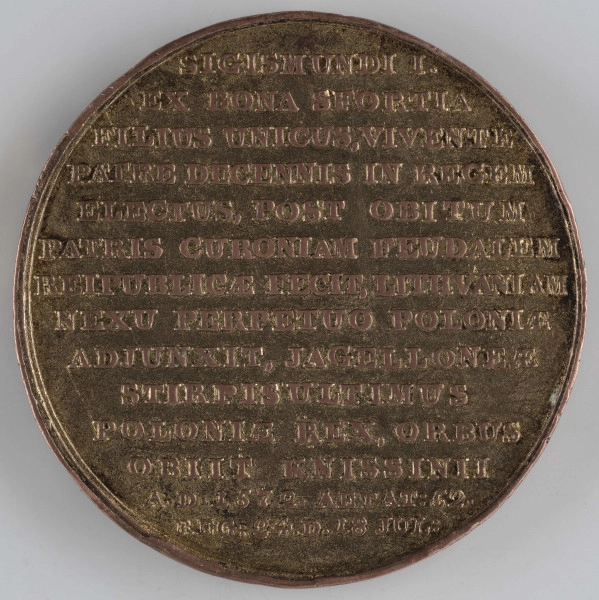 SIGISMUNDI I.
EX BONA SFORTIA
FILIUS UNICUS, VIVENTE
PATRE DECENNIS IN REGEM
ELECTUS, POST OBITUM
PATRIS CURONIAM FEUDALEM
REIPUBLICÆ FECIT LITHUANIAM
NEXU PERPETUO POLONIÆ
ADJUNXIT, JAGELLONEÆ
STIRPIS ULTIMUS
POLONIÆ REX, ORBUS
OBIIT KNISSINII
A. D. 1572. AETAT: 52.
REG: 24. D. 18 JUL: